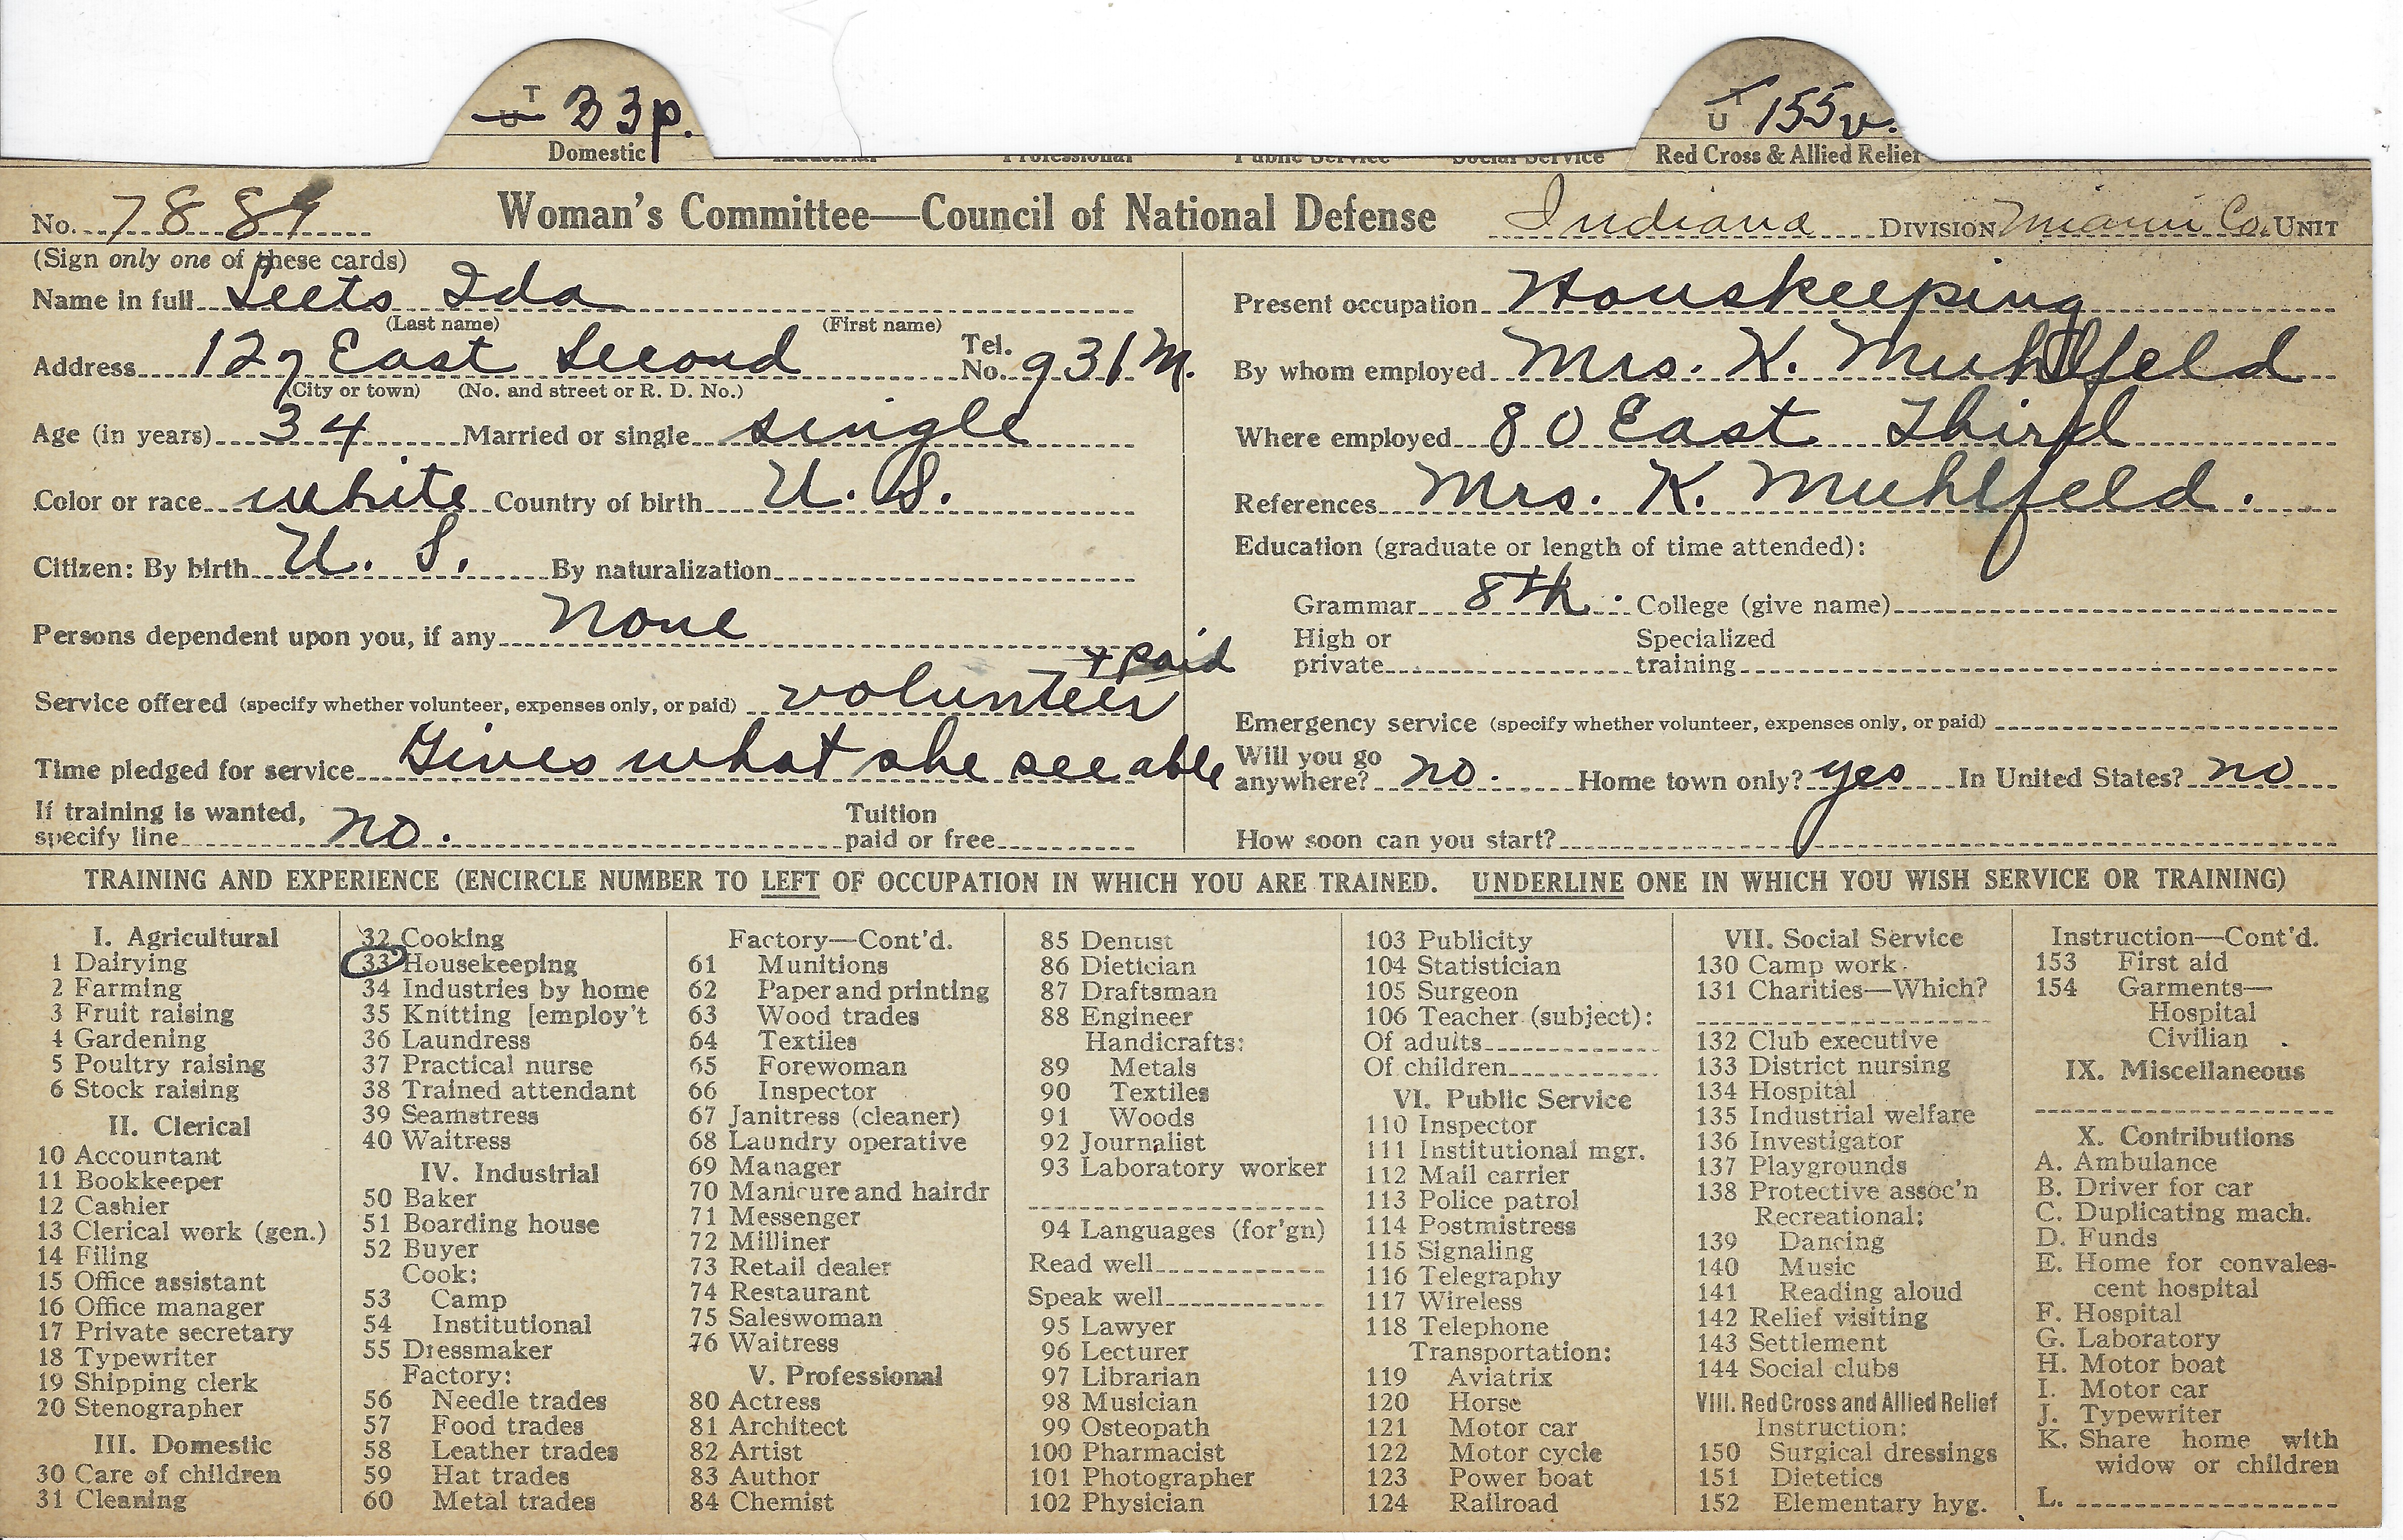 T
U 33p.
Domestic
T
U 155v.
Red Cross & Allied Relief
Industrial Professional Public Service Social Service
No. 7889 Woman's Committee—Council of National Defense Indiana DIVISION Miami Co. UNIT
(Sign only one of these cards)
Name in full Leets Ida
(Last name) (First name)
Address 127 East Second Tel. No. 931 M.
(City or town) (No. and street or R. D. No.)
Age (in years) 34 Married or single single
Color or race white Country of birth U. S.
Citizen: By birth U. S. By naturalization
Persons dependent upon you, if any none
+ paid
Service offered (specify whether volunteer, expenses only, or paid) volunteer
Time pledged for service Gives what she see able
If training is wanted, specify line no. Tuition paid or free
Present occupation Houskeeping
By whom employed Mrs. K. Muhlfeld
Where employed 80 East Third
References Mrs. K. Muhlfeld.
Education (graduate or length of time attended):
Grammar 8th. College (give name)
High or private Specialized training
Emergency service (specify whether volunteer, expenses only, or paid)
Will you go anywhere? no. Home town only? yes In United States? no
How soon can you start?
TRAINING AND EXPERIENCE (ENCIRCLE NUMBER TO LEFT OF OCCUPATION IN WHICH YOU ARE TRAINED. UNDERLINE ONE IN WHICH YOU WISH SERVICE OR TRAINING)
I. Agricultural
1 Dairying
2 Farming
3 Fruit raising
4 Gardening
5 Poultry raising
6 Stock raising
II. Clerical
10 Accountant
11 Bookkeeper
12 Cashier
13 Clerical work (gen.)
14 Filing
15 Office assistant
16 Office manager
17 Private secretary
18 Typewriter
19 Shipping clerk
20 Stenographer
III. Domestic
30 Care of children
31 Cleaning
32 Cooking
33 Housekeeping
34 Industries by home
35 Knitting [employ't
36 Laundress
37 Practical nurse
38 Trained attendant
39 Seamstress
40 Waitress
IV. Industrial
50 Baker
51 Boarding house
52 Buyer
Cook:
53 Camp
54 Institutional
55 Dressmaker
Factory:
56 Needle trades
57 Food trades
58 Leather trades
59 Hat trades
60 Metal trades
Factory—Cont'd.
61 Munitions
62 Paper and printing
63 Wood trades
64 Textiles
65 Forewoman
66 Inspector
67 Janitress (cleaner)
68 Laundry operative
69 Manager
70 Manicure and hairdr
71 Messenger
72 Milliner
73 Retail dealer
74 Restaurant
75 Saleswoman
76 Waitress
V. Professional
80 Actress
81 Architect
82 Artist
83 Author
84 Chemist
85 Dentist
86 Dietician
87 Draftsman
88 Engineer
Handicrafts:
89 Metals
90 Textiles
91 Woods
92 Journalist
93 Laboratory worker
94 Languages (for'gn)
Read well
Speak well
95 Lawyer
96 Lecturer
97 Librarian
98 Musician
99 Osteopath
100 Pharmacist
101 Photographer
102 Physician
103 Publicity
104 Statistician
105 Surgeon
106 Teacher (subject):
Of adults
Of children
VI. Public Service
110 Inspector
111 Institutional mgr.
112 Mail carrier
113 Police patrol
114 Postmistress
115 Signaling
116 Telegraphy
117 Wireless
118 Telephone
Transportation:
119 Aviatrix
120 Horse
121 Motor car
122 Motor cycle
123 Power boat
124 Railroad
VII. Social Service
130 Camp work
131 Charities—Which?
132 Club executive
133 District nursing
134 Hospital
135 Industrial welfare
136 Investigator
137 Playgrounds
138 Protective assoc'n
Recreational:
139 Dancing
140 Music
141 Reading aloud
142 Relief visiting
143 Settlement
144 Social clubs
VIII. Red Cross and Allied Relief
Instruction:
150 Surgical dressings
151 Dietetics
152 Elementary hyg.
Instruction—Cont'd.
153 First aid
154 Garments—
Hospital
Civilian
IX. Miscellaneous
X. Contributions
A. Ambulance
B. Driver for car
C. Duplicating mach.
D. Funds
E. Home for convales-
cent hospital
F. Hospital
G. Laboratory
H. Motor boat
I. Motor car
J. Typewriter
K. Share home with
widow or children
L.